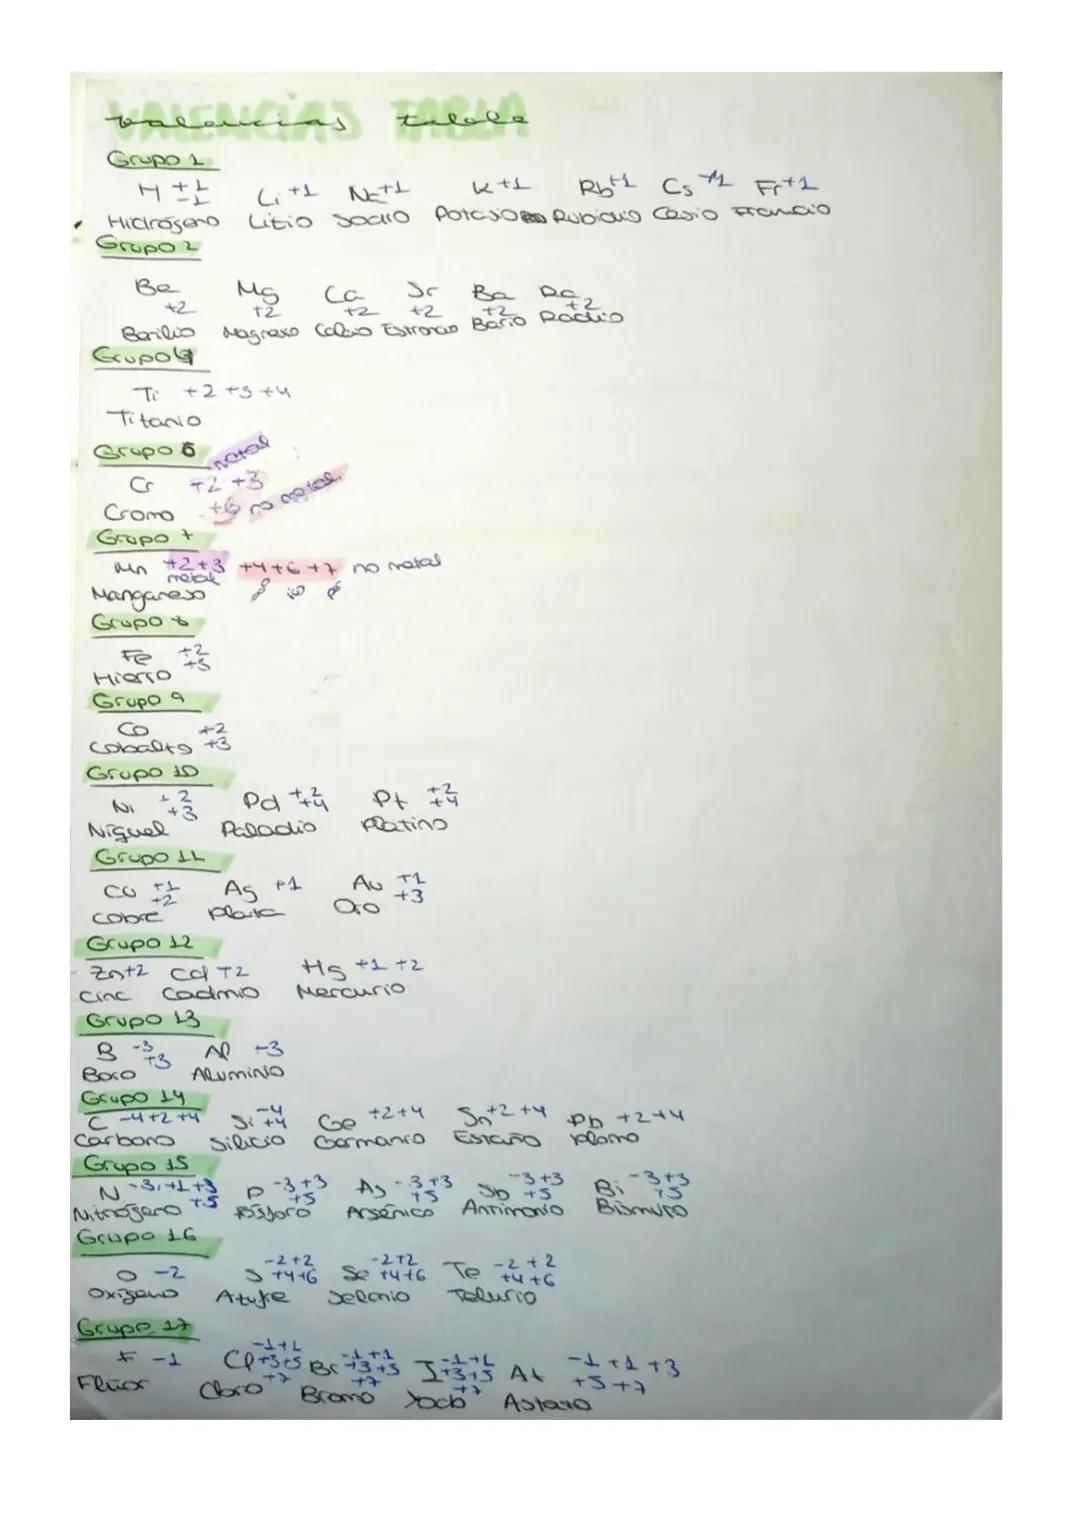 VALENCIAS TABLA
Valencias tabla
Grupo 1
H +1 -1 Li +1 Na +1 K +1 Rb +1 Cs +1 Fr +1
Hidrógeno Litio Sodio Potasio Rubidio Cesio Francio
Grupo 2
Be Mg Ca Sr Ba Ra
+2 +2 +2 +2 +2 +2
Berilio Magnesio Calcio Estroncio Bario Radio
Grupo 4
Ti +2 +3 +4
Titanio
Grupo 6 metal
Cr +2 +3
Cromo +6 no metal.
Grupo 7
Mn +2 +3 +4 +6 +7 no metal
metal
Manganeso
Grupo 8
Fe +2
+3
Hierro
Grupo 9
Co +2
Cobalto +3
Grupo 10
Ni +2 +3 Pd +2 +4 Pt +2 +4
Níquel Paladio Platino
Grupo 11
Cu +1 +2 Ag +1 Au +1 +3
Cobre Plata Oro
Grupo 12
Zn +2 Cd +2 Hg +1 +2
Cinc Cadmio Mercurio
Grupo 13
B -3 +3 Al +3
Boro Aluminio
Grupo 14
C -4 +2 +4 Si -4 +4 Ge +2 +4 Sn +2 +4 Pb +2 +4
Carbono Silicio Germanio Estaño Plomo
Grupo 15
N -3, +1 +3 +5 P -3 +3 +5 As -3 +3 +5 Sb -3 +3 +5 Bi -3 +3 +5
Nitrógeno Fósforo Arsénico Antimonio Bismuto
Grupo 16
O -2 S -2 +2 +4 +6 Se -2 +2 +4 +6 Te -2 +2 +4 +6
Oxígeno Azufre Selenio Telurio
Grupo 17
F -1 Cl -1 +1 +3 +5 +7 Br -1 +1 +3 +5 +7 I -1 +1 +3 +5 +7 At -1 +1 +3 +5 +7
Flúor Cloro Bromo Yodo Astato